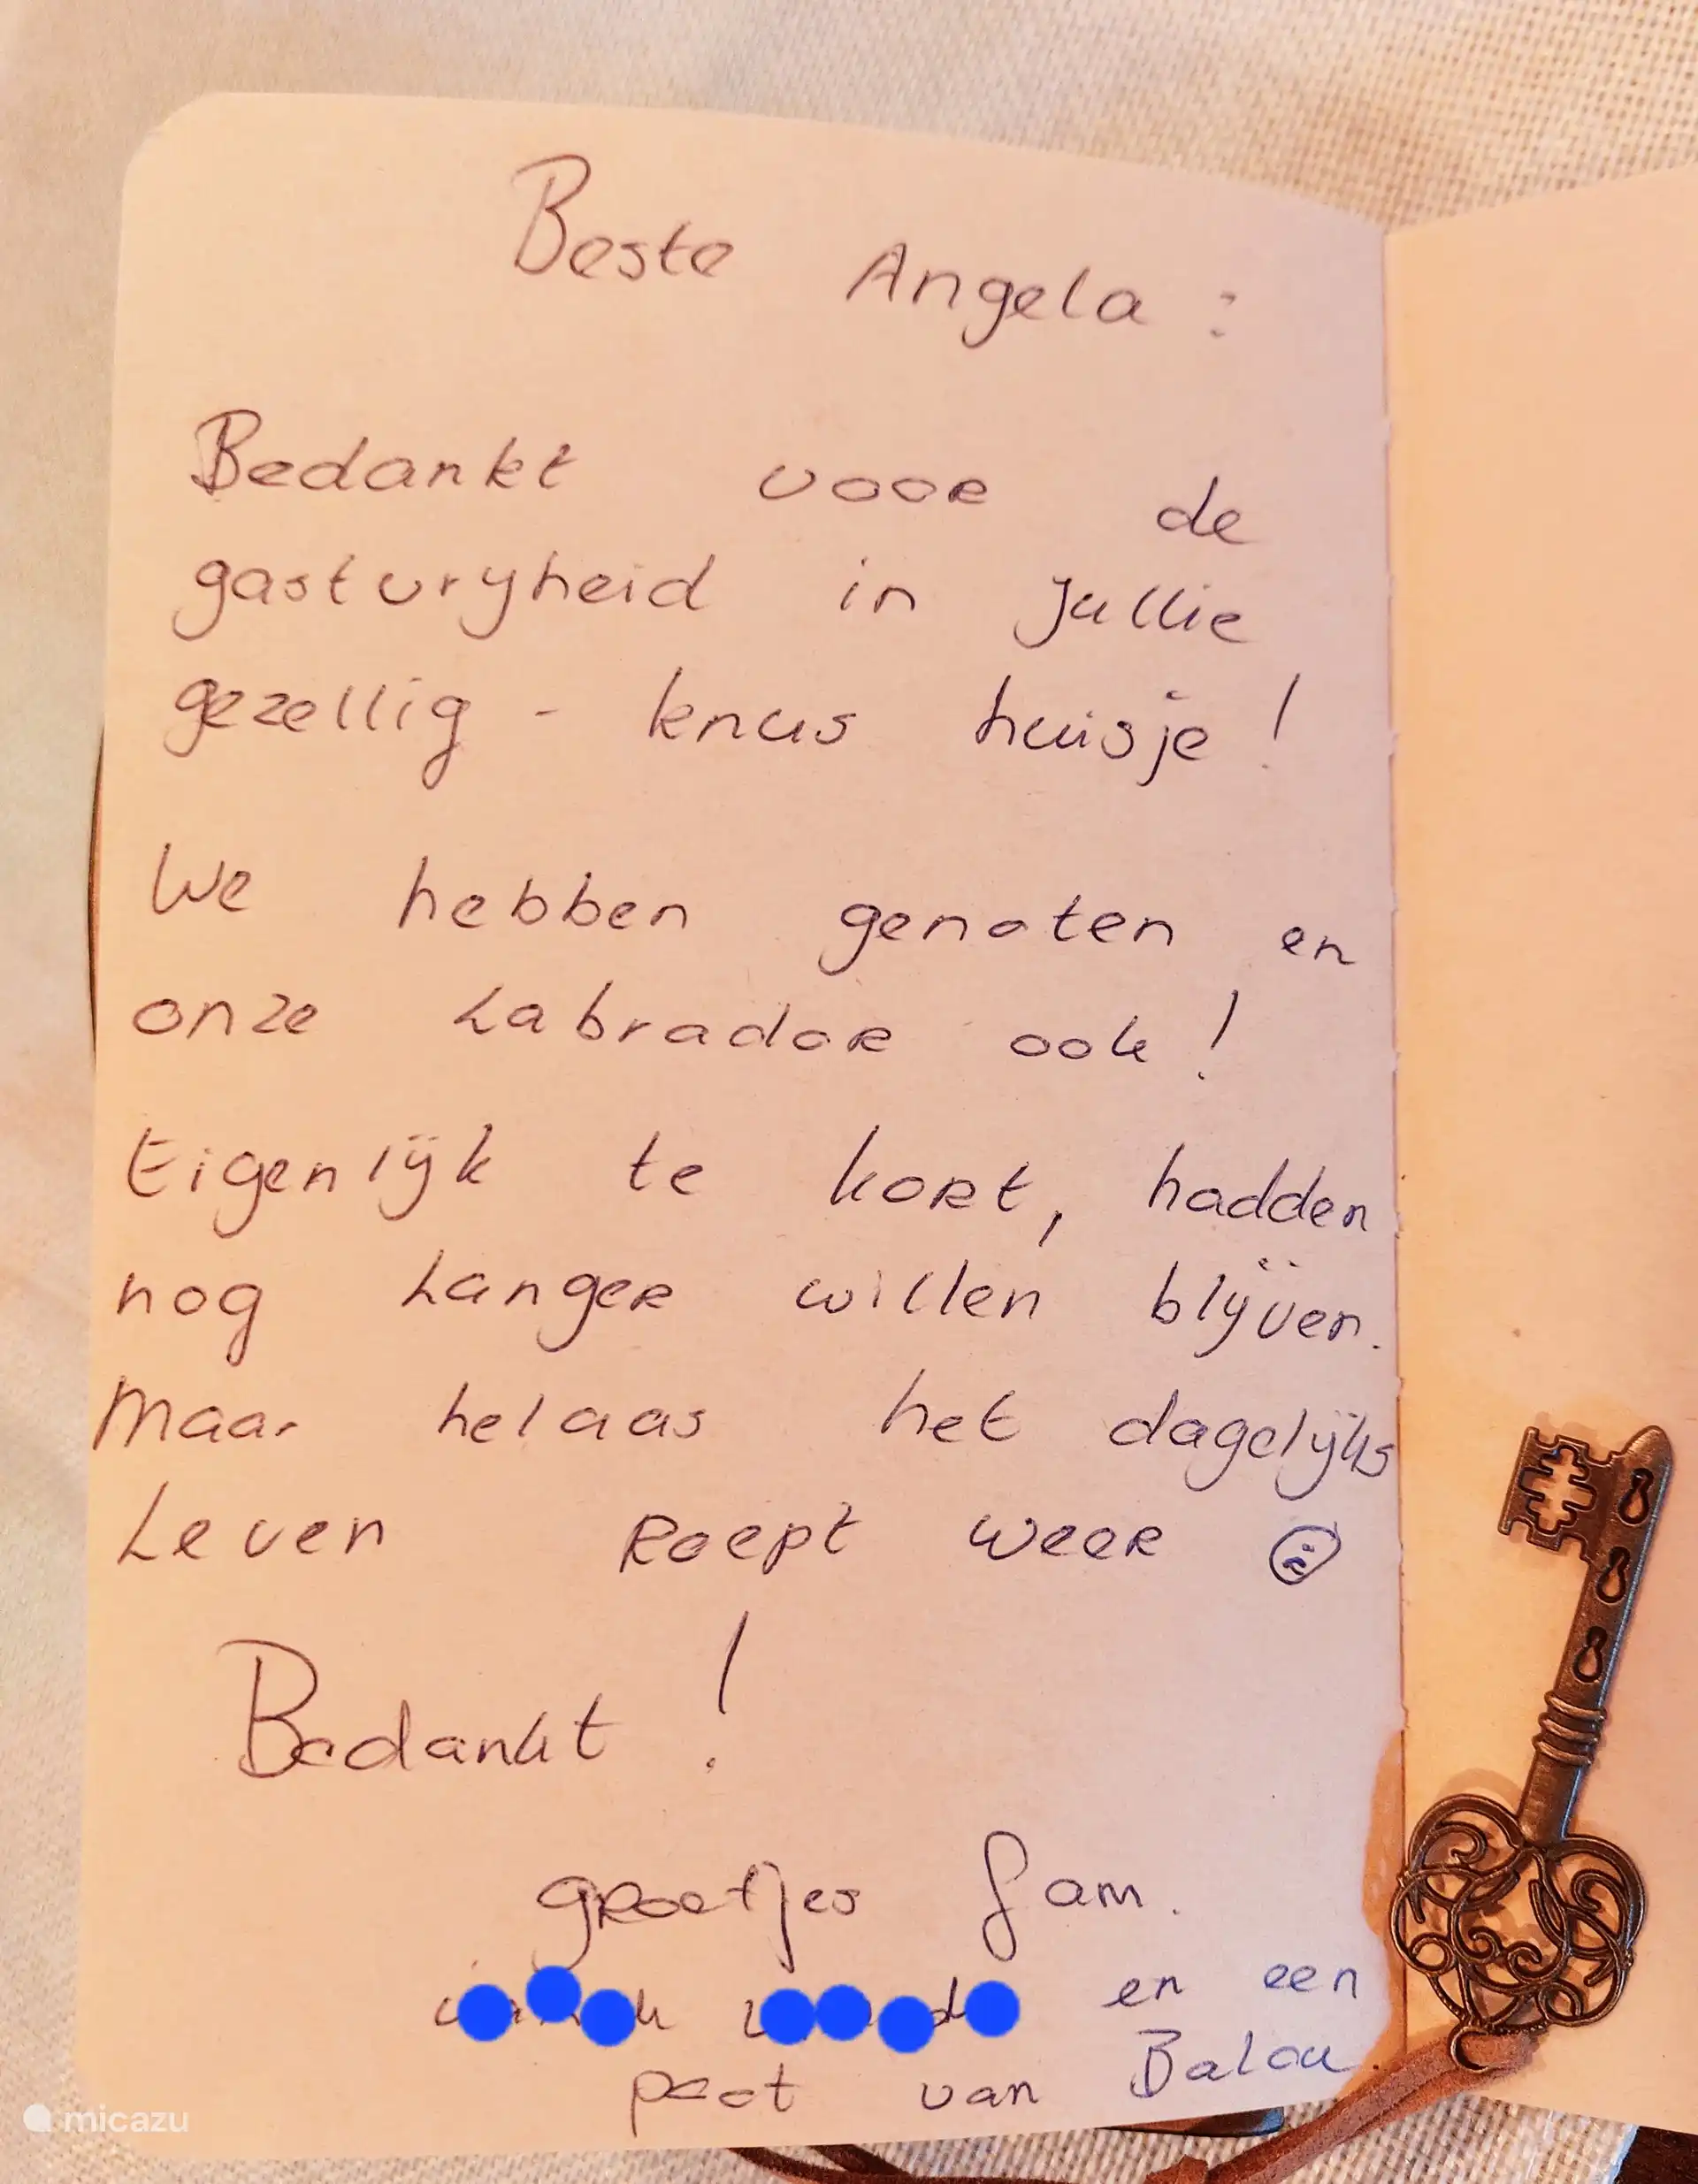 Beste Angela :
Bedankt voor de
gastvryheid in jullie
gezellig - knus huisje !
We hebben genoten en
onze Labrador ook !
Eigenlijk te kort, hadden
nog Langer willen blijven.
Maar helaas het dagelijks
Leven Roept weer
Bedankt !
groetjes fam.
en een
poot van Balou.
micazu